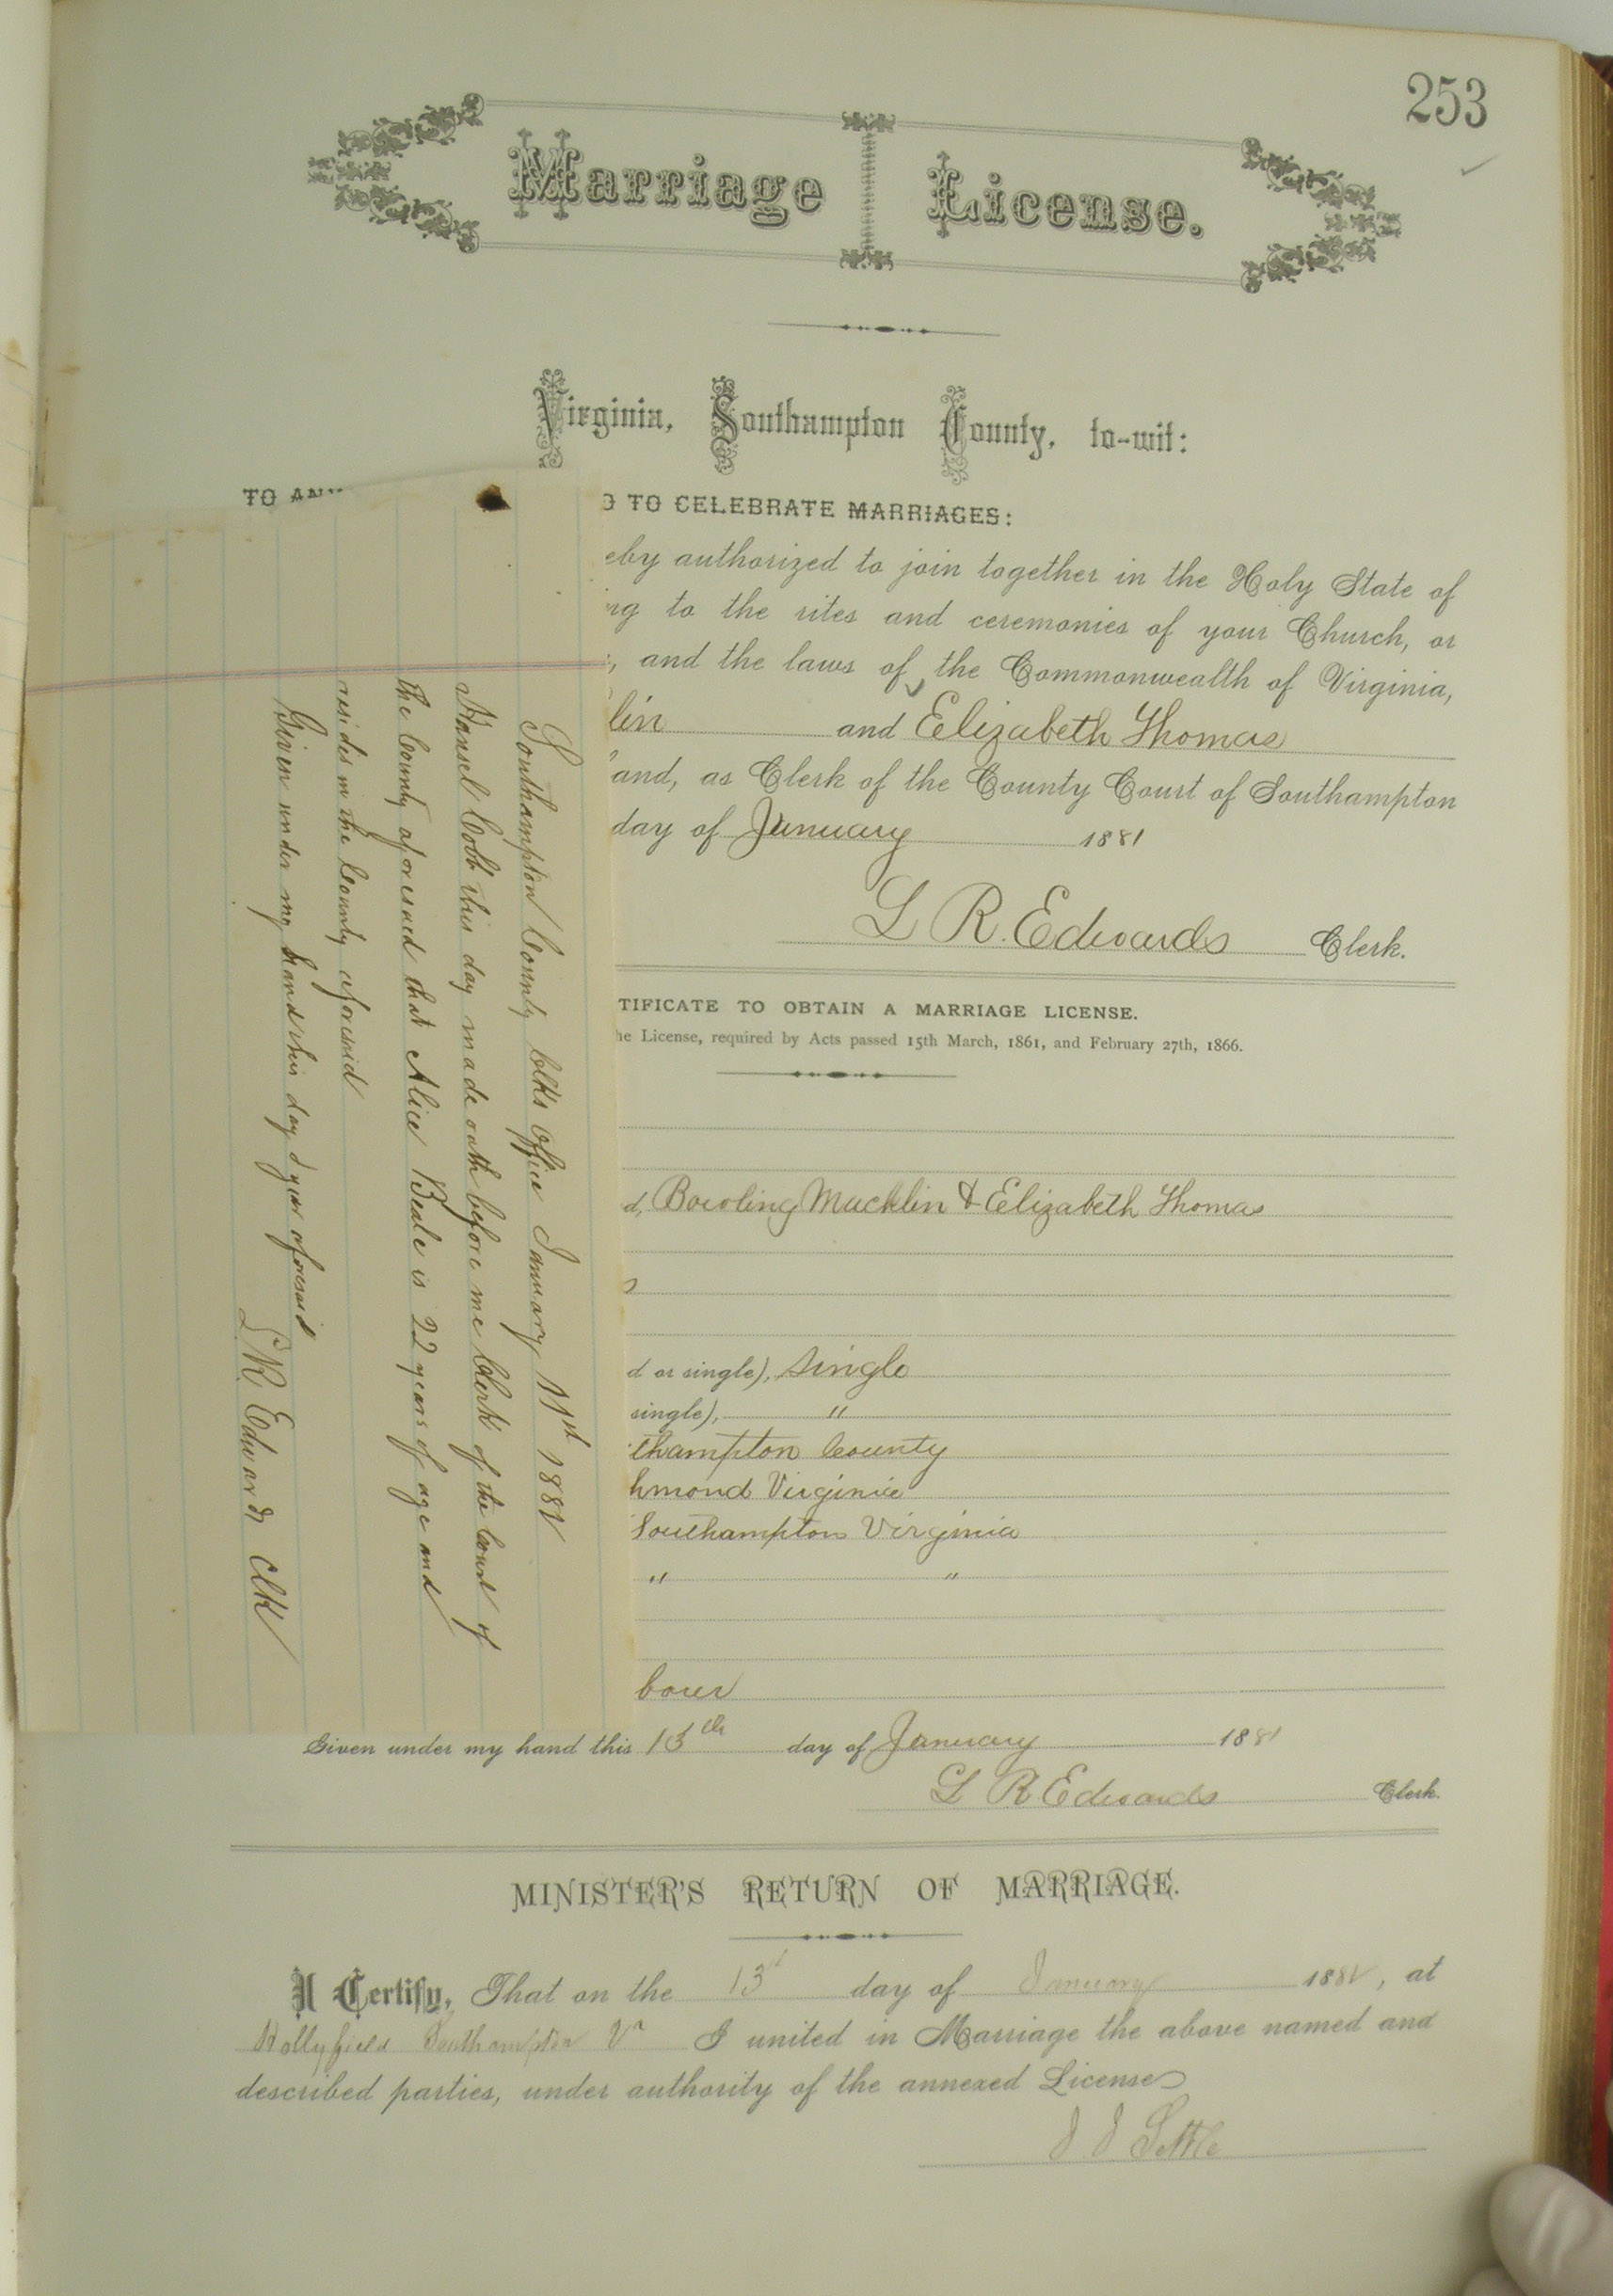 253
Marriage License.
Virginia, Southampton County, to-wit:
TO ANY
TO CELEBRATE MARRIAGES:
eby authorized to join together in the Holy State of
ng to the rites and ceremonies of your Church, or
, and the laws of the Commonwealth of Virginia,
lin and Elizabeth Thomas
and, as Clerk of the County Court of Southampton
day of January 1881
L R. Edwards Clerk.
TIFICATE TO OBTAIN A MARRIAGE LICENSE.
he License, required by Acts passed 15th March, 1861, and February 27th, 1866.
d, Bowling Macklin & Elizabeth Thomas
d or single), single
single), "
thampton County
hmond Virginia
Southampton Virginia
" "
borer
Given under my hand this 13th day of January 1881
L R Edwards Clerk.
MINISTER'S RETURN OF MARRIAGE.
I Certify, That on the 13 day of January 188, at
Hollyfield Southampton Va I united in Marriage the above named and
described parties, under authority of the annexed License
J J Settle
Southampton County Clks Office January 188
Hansel Cobb this day made oath before me Clerk of the Court of
the County aforesaid that Alice Beale is 22 years of age and
resides in the County aforesaid
Given under my hand this day & year aforesaid
L R Edwards Clk